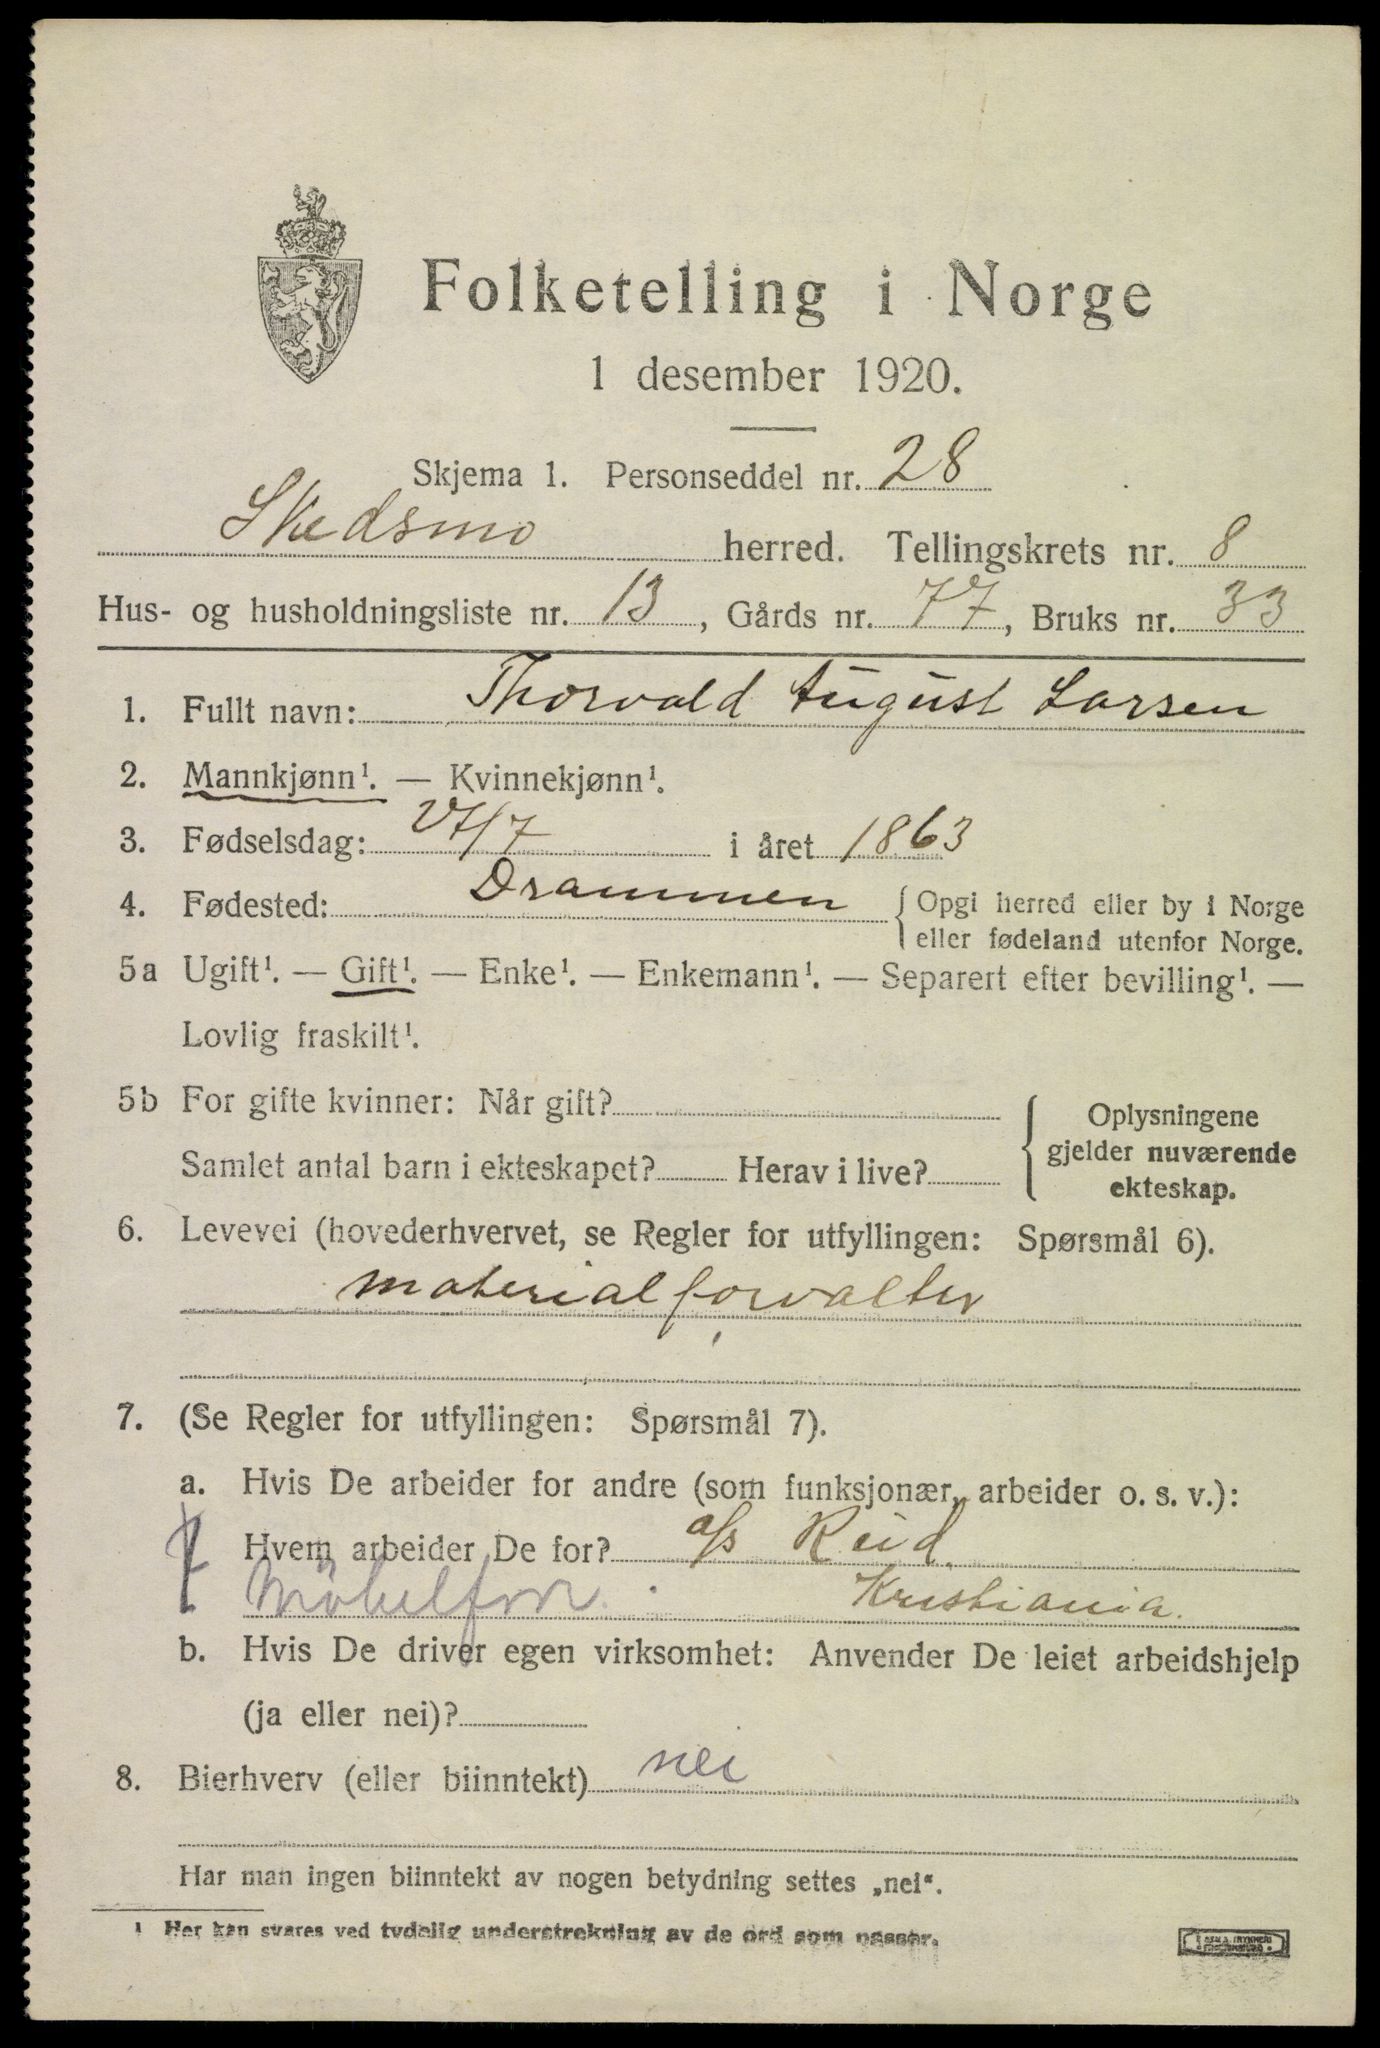 Folketelling i Norge
1 desember 1920.
Skjema 1. Personseddel nr. 28
Skedsmo herred. Tellingskrets nr. 8
Hus- og husholdningsliste nr. 13, Gårds nr. 77, Bruks nr. 33
1. Fullt navn: Thorvald August Larsen
2. Mannkjønn¹. — Kvinnekjønn¹.
3. Fødselsdag: 27/7 i året 1863
4. Fødested: Drammen { Opgi herred eller by i Norge
eller fødeland utenfor Norge.
5a Ugift¹. — Gift¹. — Enke¹. — Enkemann¹. — Separert efter bevilling¹. —
Lovlig fraskilt¹.
5b For gifte kvinner: Når gift?
Samlet antal barn i ekteskapet? Herav i live?
{ Oplysningene
gjelder nuværende
ekteskap.
6. Levevei (hovederhvervet, se Regler for utfyllingen: Spørsmål 6).
materialforvalter
7. (Se Regler for utfyllingen: Spørsmål 7).
a. Hvis De arbeider for andre (som funksjonær, arbeider o. s. v.):
Hvem arbeider De for? a/s Reid
Möbelforr. Kristiania.
b. Hvis De driver egen virksomhet: Anvender De leiet arbeidshjelp
(ja eller nei)?
8. Bierhverv (eller biinntekt) nei
Har man ingen biinntekt av nogen betydning settes „nei“.
¹ Her kan svares ved tydelig understrekning av de ord som passer.